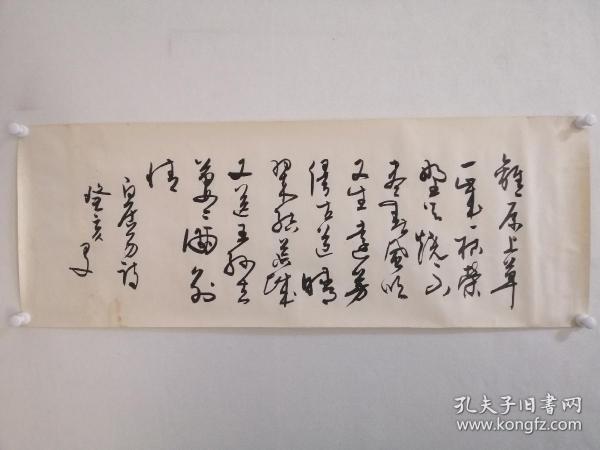 離原上草
一歲一枯榮
野火燒不
盡春風吹
又生遠芳
侵古道晴
翠接荒城
又送王孫去
萋〻滿別
情
白居易詩
癸亥夏
孔夫子旧书网
www.kongfz.com